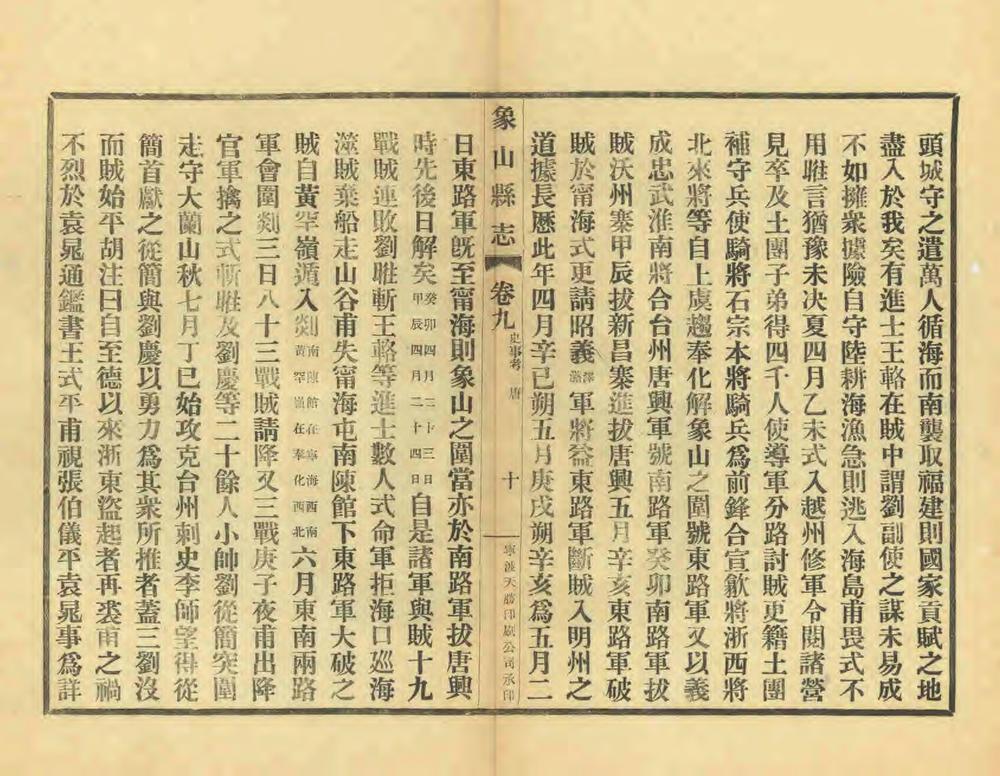 頭城守之遣萬人循海而南襲取福建則國家貢賦之地
盡入於我矣有進士王輅在賊中謂劉副使之謀未易成
不如擁衆據險自守陸耕海漁急則逃入海島甫畏式不
用暀言猶豫未決夏四月乙未式入越州修軍令閱諸營
見卒及土團子弟得四千人使導軍分路討賊更籍土團
補守兵使騎將石宗本將騎兵爲前鋒合宣歙將浙西將
北來將等自上虞趨奉化解象山之圍號東路軍又以義
成忠武淮南將合台州唐興軍號南路軍癸卯南路軍拔
賊沃州寨甲辰拔新昌寨進拔唐興五月辛亥東路軍破
賊於甯海式更請昭義澤潞軍將益東路軍斷賊入明州之
道據長歷此年四月辛巳朔五月庚戌朔辛亥爲五月二
象山縣志 卷九 史事考 唐 十 寧波天勝印刷公司承印
日東路軍旣至甯海則象山之圍當亦於南路軍拔唐興
時先後日解矣癸卯四月二十三日甲辰四月二十四日自是諸軍與賊十九
戰賊連敗劉暀斬王輅等進士數人式命軍拒海口廵海
澨賊棄船走山谷甫失甯海屯南陳館下東路軍大破之
賊自黃罕嶺遁入剡南陳館在寧海西南黃罕嶺在奉化西北六月東南兩路
軍會圍剡三日八十三戰賊請降又三戰庚子夜甫出降
官軍擒之式斬暀及劉慶等二十餘人小帥劉從簡突圍
走守大蘭山秋七月丁巳始攻克台州刺史李師望得從
簡首獻之從簡與劉慶以勇力爲其衆所推者蓋三劉沒
而賊始平胡注曰自至德以來浙東盜起者再裘甫之禍
不烈於袁晁通鑑書王式平甫視張伯儀平袁晁事爲詳